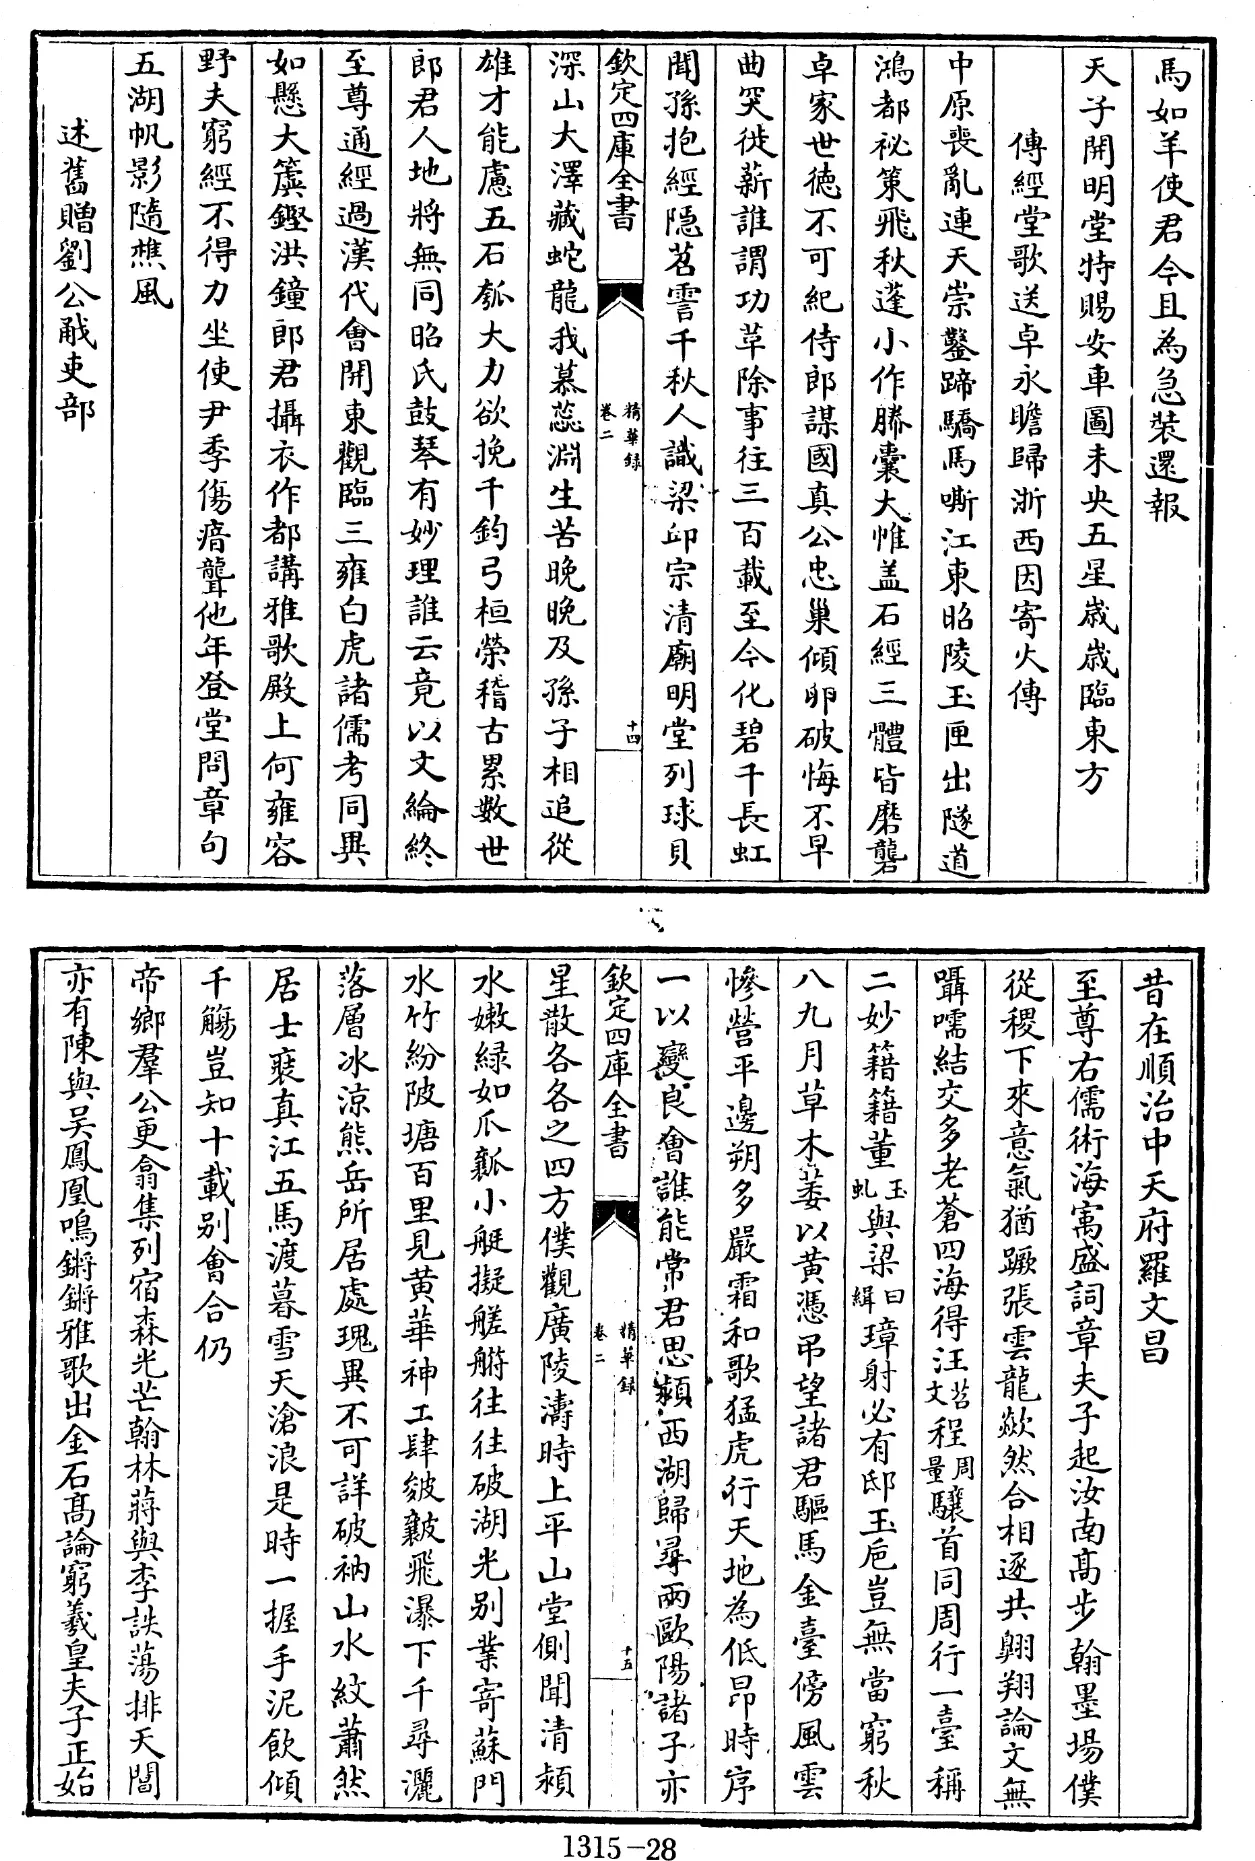 馬如羊使君今且為急裝還報
天子開明堂特賜安車圖未央五星歲歲臨東方
傳經堂歌送卓永瞻歸浙西因寄火傳
中原喪亂連天崇鑿蹄驕馬嘶江東昭陵玉匣出隧道
鴻都祕策飛秋蓬小作縢囊大帷蓋石經三體皆磨礱
卓家世德不可紀侍郎謀國真公忠巢傾卵破悔不早
曲突徙薪誰謂功革除事往三百載至今化碧千長虹
聞孫抱經隱苕霅千秋人識梁邱宗清廟明堂列球貝
欽定四庫全書
精華録
卷二
十四
深山大澤藏蛇龍我慕蕊淵生苦晚晚及孫子相追從
雄才能慮五石瓠大力欲挽千鈞弓桓榮稽古累數世
郎君人地將無同昭氏鼓琴有妙理誰云竟以文綸終
至尊通經過漢代會開東觀臨三雍白虎諸儒考同異
如懸大簴鏗洪鐘郎君攝衣作都講雅歌殿上何雍容
野夫窮經不得力坐使尹季傷瘖聾他年登堂問章句
五湖帆影隨樵風
述舊贈劉公㦷吏部
昔在順治中天府羅文昌
至尊右儒術海寓盛詞章夫子起汝南髙步翰墨場僕
從稷下來意氣猶蹶張雲龍歘然合相逐共翺翔論文無
囁嚅結交多老蒼四海得汪苕文程周量驤首同周行一臺稱
二妙籍籍董玉虬與梁曰緝璋射必有邸玉巵豈無當窮秋
八九月草木萎以黃憑弔望諸君驅馬金臺傍風雲
慘營平邊朔多嚴霜和歌猛虎行天地為低昂時序
一以變良會誰能常君思潁西湖歸尋兩歐陽諸子亦
欽定四庫全書
精華録
卷二
十五
星散各各之四方僕觀廣陵濤時上平山堂側聞清潁
水嫩緑如瓜瓤小艇擬艖艀往往破湖光别業寄蘇門
水竹紛陂塘百里見黃華神工肆皴皵飛瀑下千尋灑
落層冰涼熊岳所居處瑰異不可詳破衲山水紋蕭然
居士裝真江五馬渡暮雪天滄浪是時一握手泥飲傾
千觴豈知十載别會合仍
帝鄉羣公更翕集列宿森光芒翰林蔣與李詄蕩排天閶
亦有陳與吴鳳凰鳴鏘鏘雅歌出金石髙論窮羲皇夫子正始
1315-28